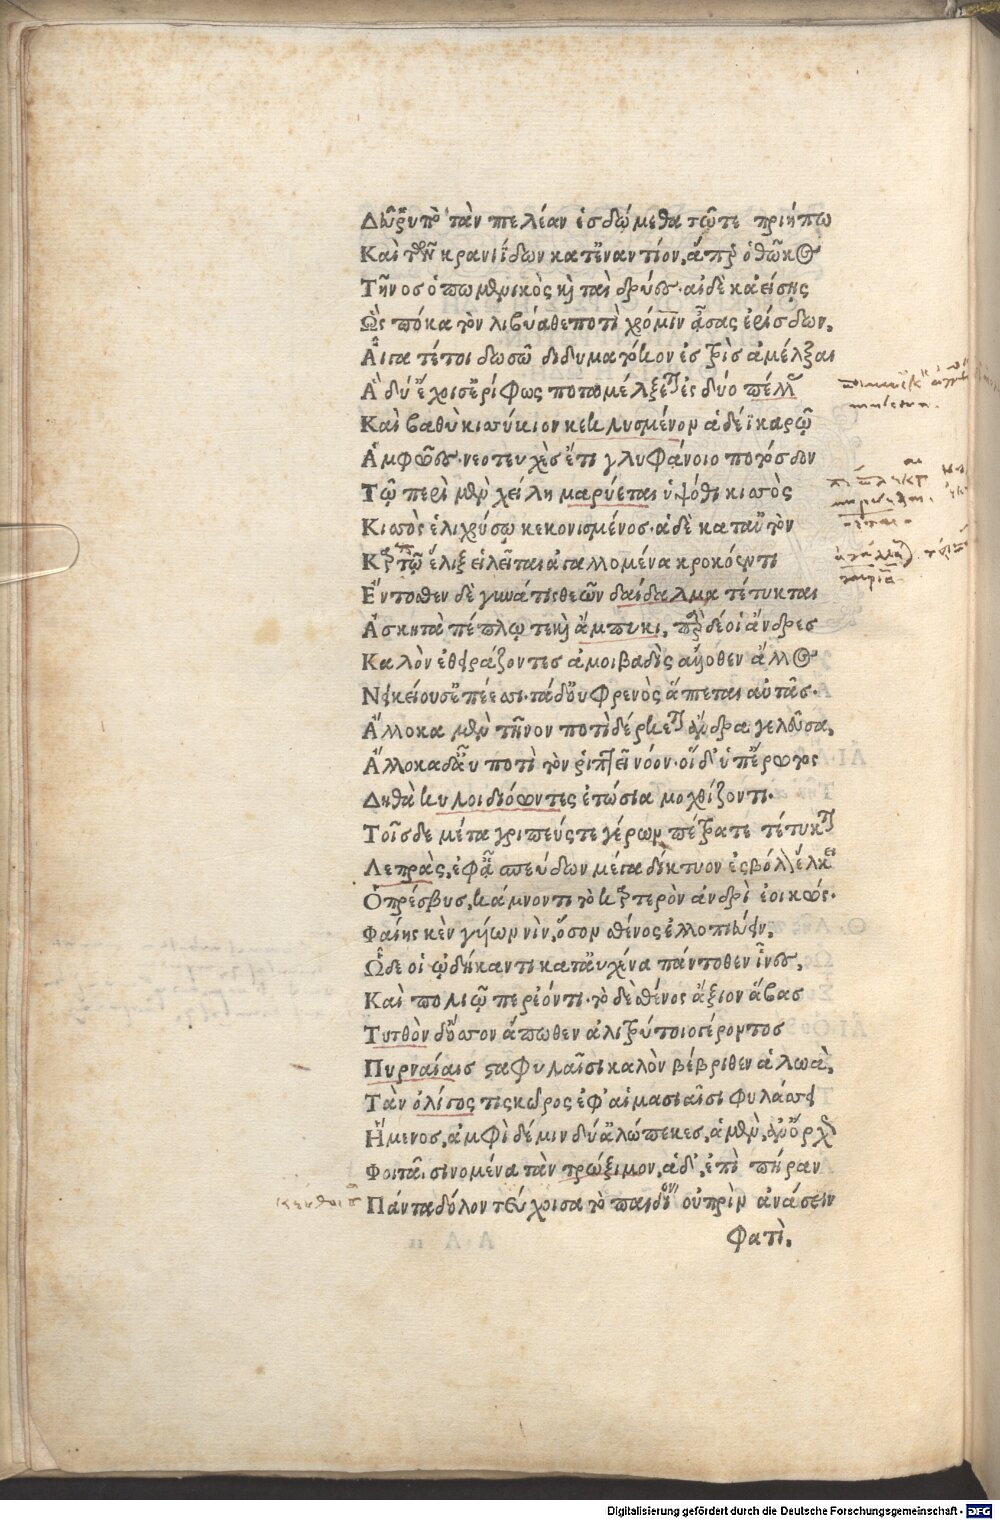 Δεῦρ' ὑπὸ τὰν πτελέαν ἑσδώμεθα τῶτε πριήπω
Καὶ τῶν κρανιΐδων κατεναντίον, ἅπερ ὁ θῶκος
Τῆνος ὁ ποιμενικὸς καὶ ταὶ δρύες. αἰ δὲ κ' ἀείσῃς
Ὡς πόκα τὸν λιβύαθε ποτὶ χρόμιν ᾆσας ἐρίσδων,
Αἶγα τέ τοι δωσῶ διδυματόκον ἐς τρὶς ἀμέλξαι
Ἁ δύ' ἔχοισ' ἐρίφως ποταμέλξεται ἐς δύο πέλλας
Καὶ βαθὺ κισσύβιον κεκλυσμένον ἁδέϊ καρῶ
Ἀμφῶες. νεοτευχὲς ἔτι γλυφάνοιο ποτόσδον
Τῶ περὶ μὲν χείλη μαρύεται ὑψόθι κισσὸς
Κισσὸς ἑλιχρύσῳ κεκονισμένος. ἁ δὲ κατ' αὐτὸν
Καρπῷ ἕλιξ εἱλεῖται ἀγαλλομένα κροκόεντι
Ἔντοσθεν δὲ γυνά τις θεῶν δαίδαλμα τέτυκται
Ἀσκητὰ πέπλῳ τε καὶ ἄμπυκι, πὰρ δέ οἱ ἄνδρες
Καλὸν ἐθειράζοντες ἀμοιβαδὶς ἄλλοθεν ἄλλος
Νεικείουσ' ἐπέεσσι. τὰ δ' οὐ φρενὸς ἅπεται αὐτᾶς.
Ἄλλοκα μὲν τῆνον ποτιδέρκεται ἄνδρα γελοῦσα,
Ἄλλοκα δ' αὖ ποτὶ τὸν ῥιπτεῖ νόον. οἵ δ' ὑπ' ἔρωτος
Δηθὰ κυλοιδιόωντες ἐτώσια μοχθίζοντι.
Τοῖς δὲ μέτα γριπεύς τε γέρων πέτρα τε τέτυκται
Λεπρὰς, ἐφ' ᾇ σπεύδων μέγα δίκτυον ἐς βόλον ἕλκει
Ὁ πρέσβυς, κάμνοντι τὸ καρτερὸν ἀνδρὶ ἐοικώς.
Φαίης κὲν γυίων νὶν, ὅσον σθένος ἐλλοπιεύειν,
Ὧδε οἱ ᾠδήκαντι κατ' αὐχένα πάντοθεν ἶνες,
Καὶ πολιῷ περ ἐόντι. τὸ δὲ σθένος ἄξιον ἅβας
Τυτθὸν δ' ὅσσον ἄπωθεν ἁλιτρύτοιο γέροντος
Πυρναίαις σταφυλαῖσι καλὸν βέβριθεν ἁλωὰ,
Τὰν ὀλίγος τις κῶρος ἐφ' αἱμασιαῖσι φυλάσσει
Ἥμενος, ἀμφὶ δέ μιν δύ' ἀλώπεκες, ἁ μὲν, ἀν' ὄρχως
Φοιτᾶ, σινομένα τὰν τρώξιμον, ἁ δ', ἐπὶ πήραν
Πάντα δόλον τεύχοισα τὸ παιδίον οὐ πρὶν ἀνάσειν
Φατὶ,
Digitalisierung gefördert durch die Deutsche Forschungsgemeinschaft - DFG